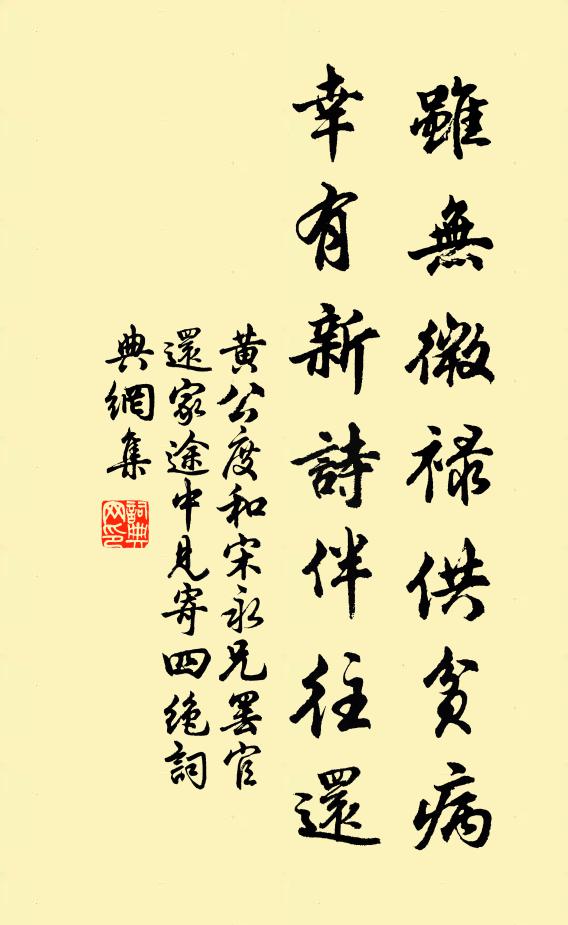 雖無微祿供貧病
幸有新詩伴往還
黃公度和宋永兄罷官
還家途中見寄四絶詞
典網集
詞典
网印